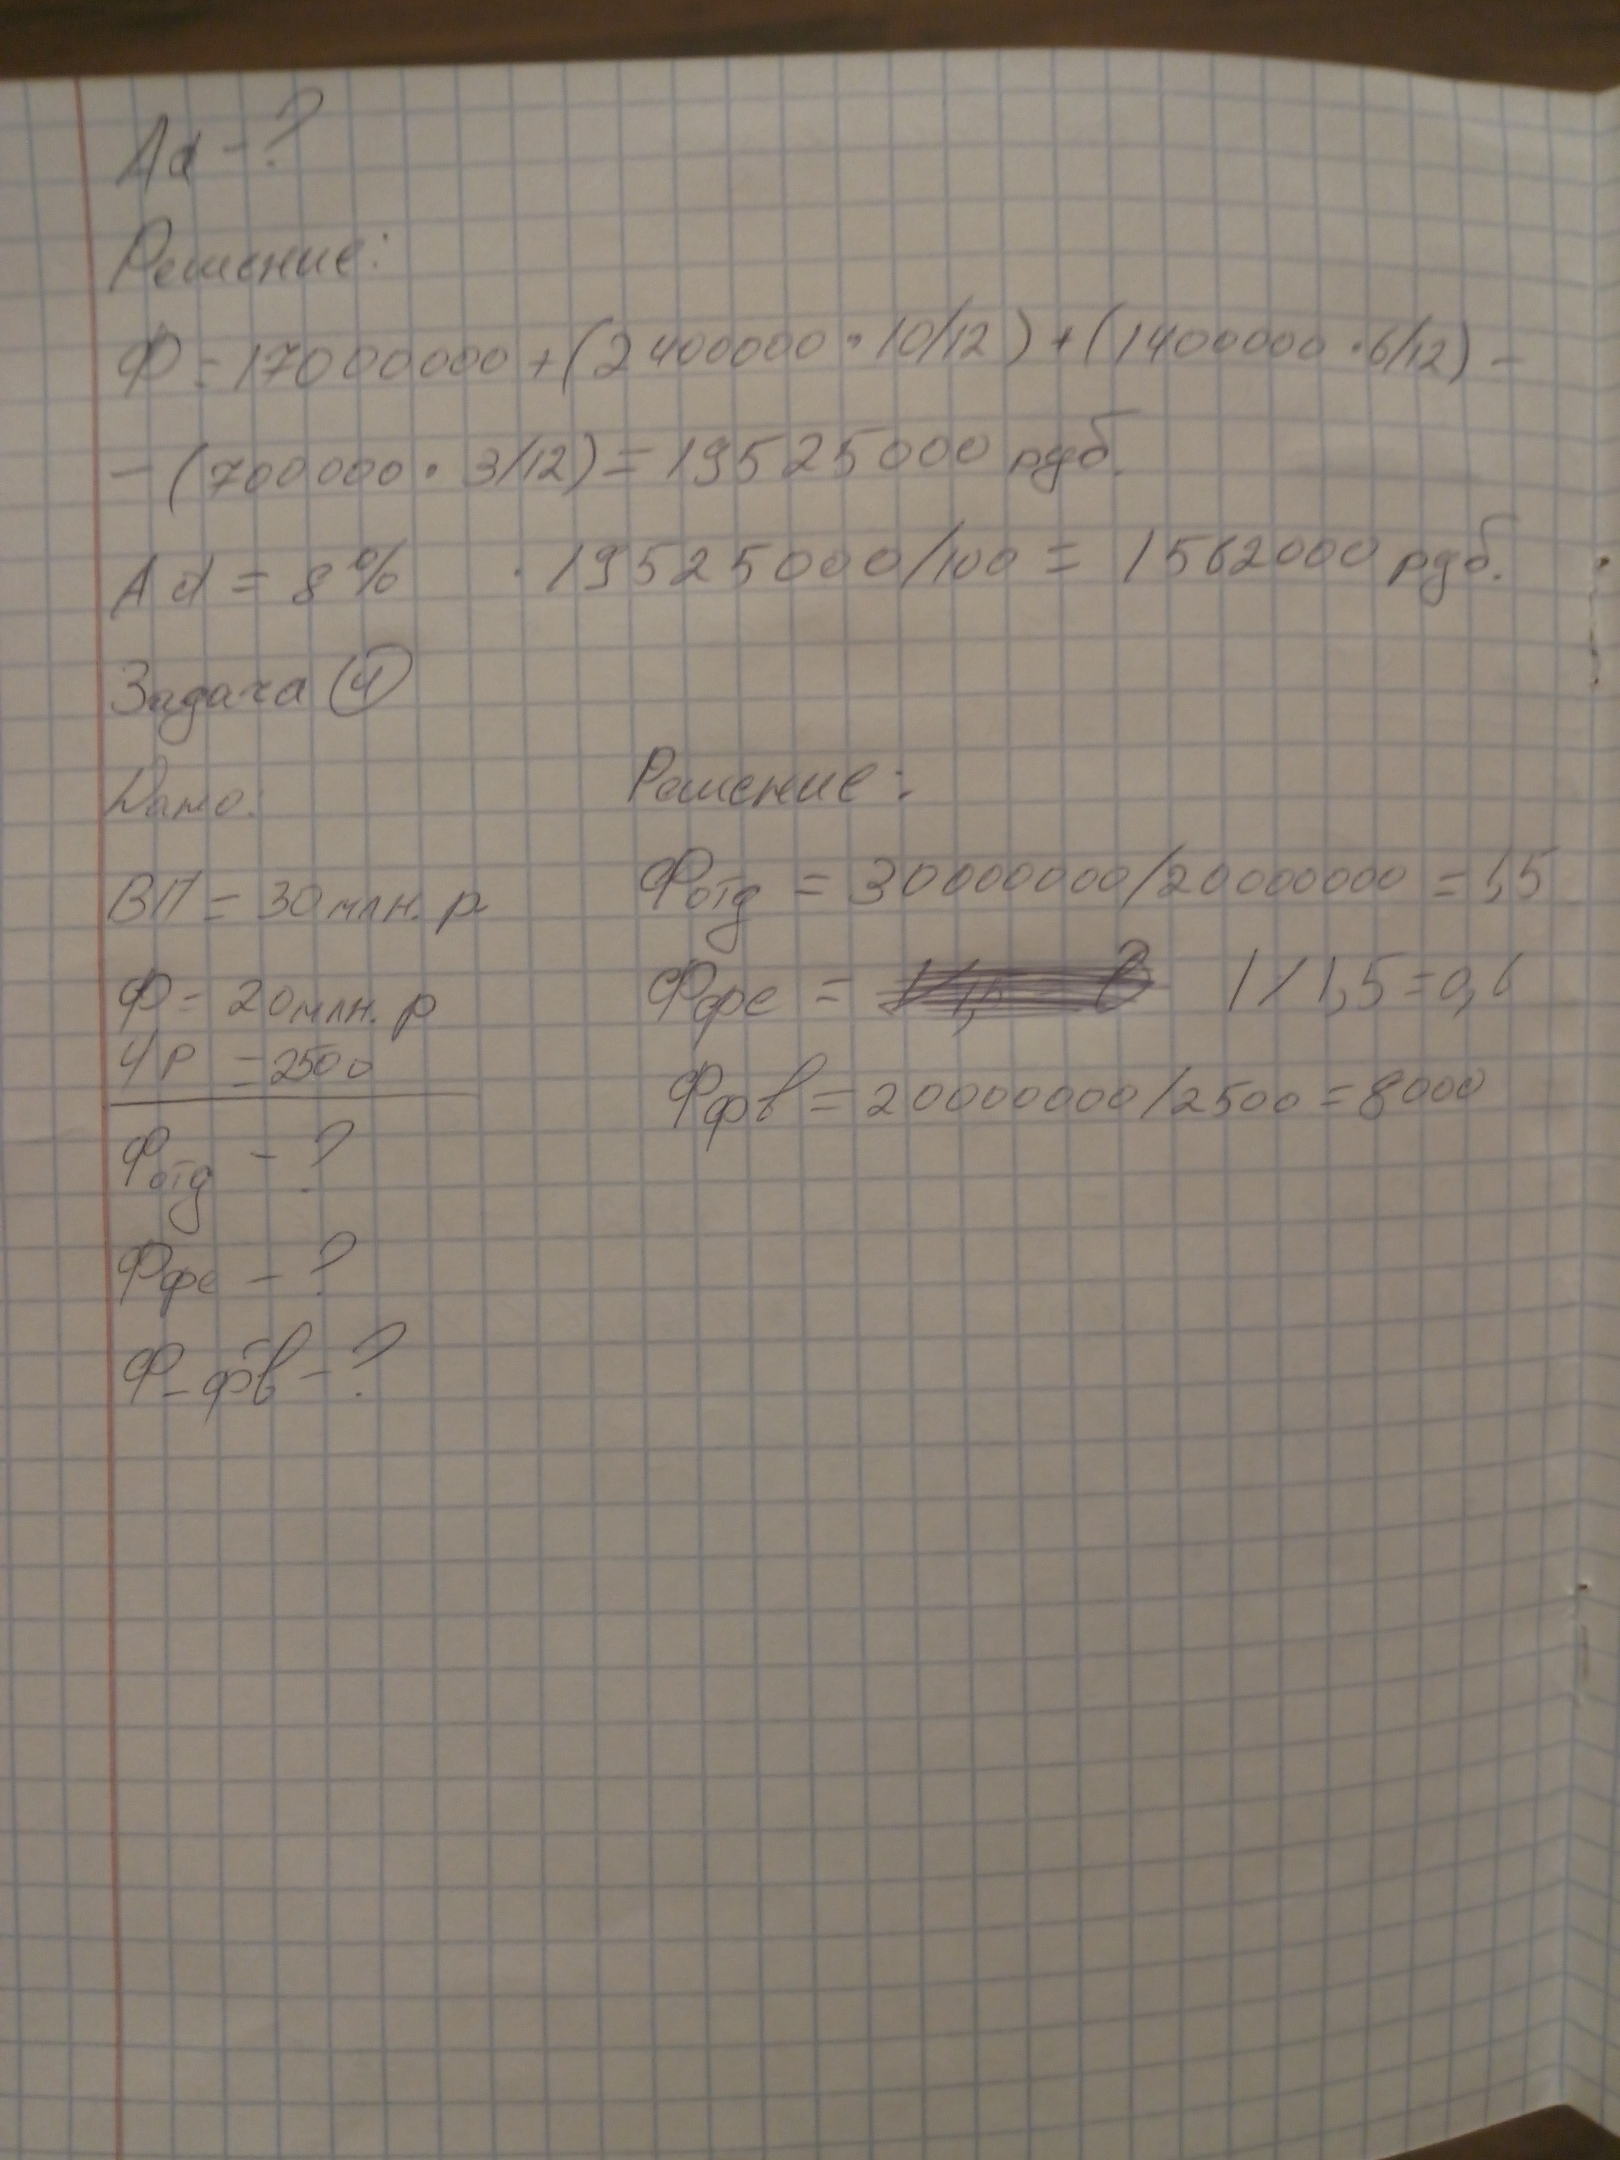 Ad - ?
Решение:
Ф = 17000000 + (2400000 · 10/12) + (1400000 · 6/12) -
- (700000 · 3/12) = 19525000 руб.
Ad = 8% · 19525000/100 = 1562000 руб.
Задача 4
Дано:
ВП = 30 млн. р
Ф = 20 млн. р
ЧР = 2500
Фотд - ?
Ффе - ?
Ф-фв - ?
Решение:
Фотд = 30000000/20000000 = 1,5
Ффе = 1/1,5 = 0,6
Ффв = 20000000/2500 = 8000